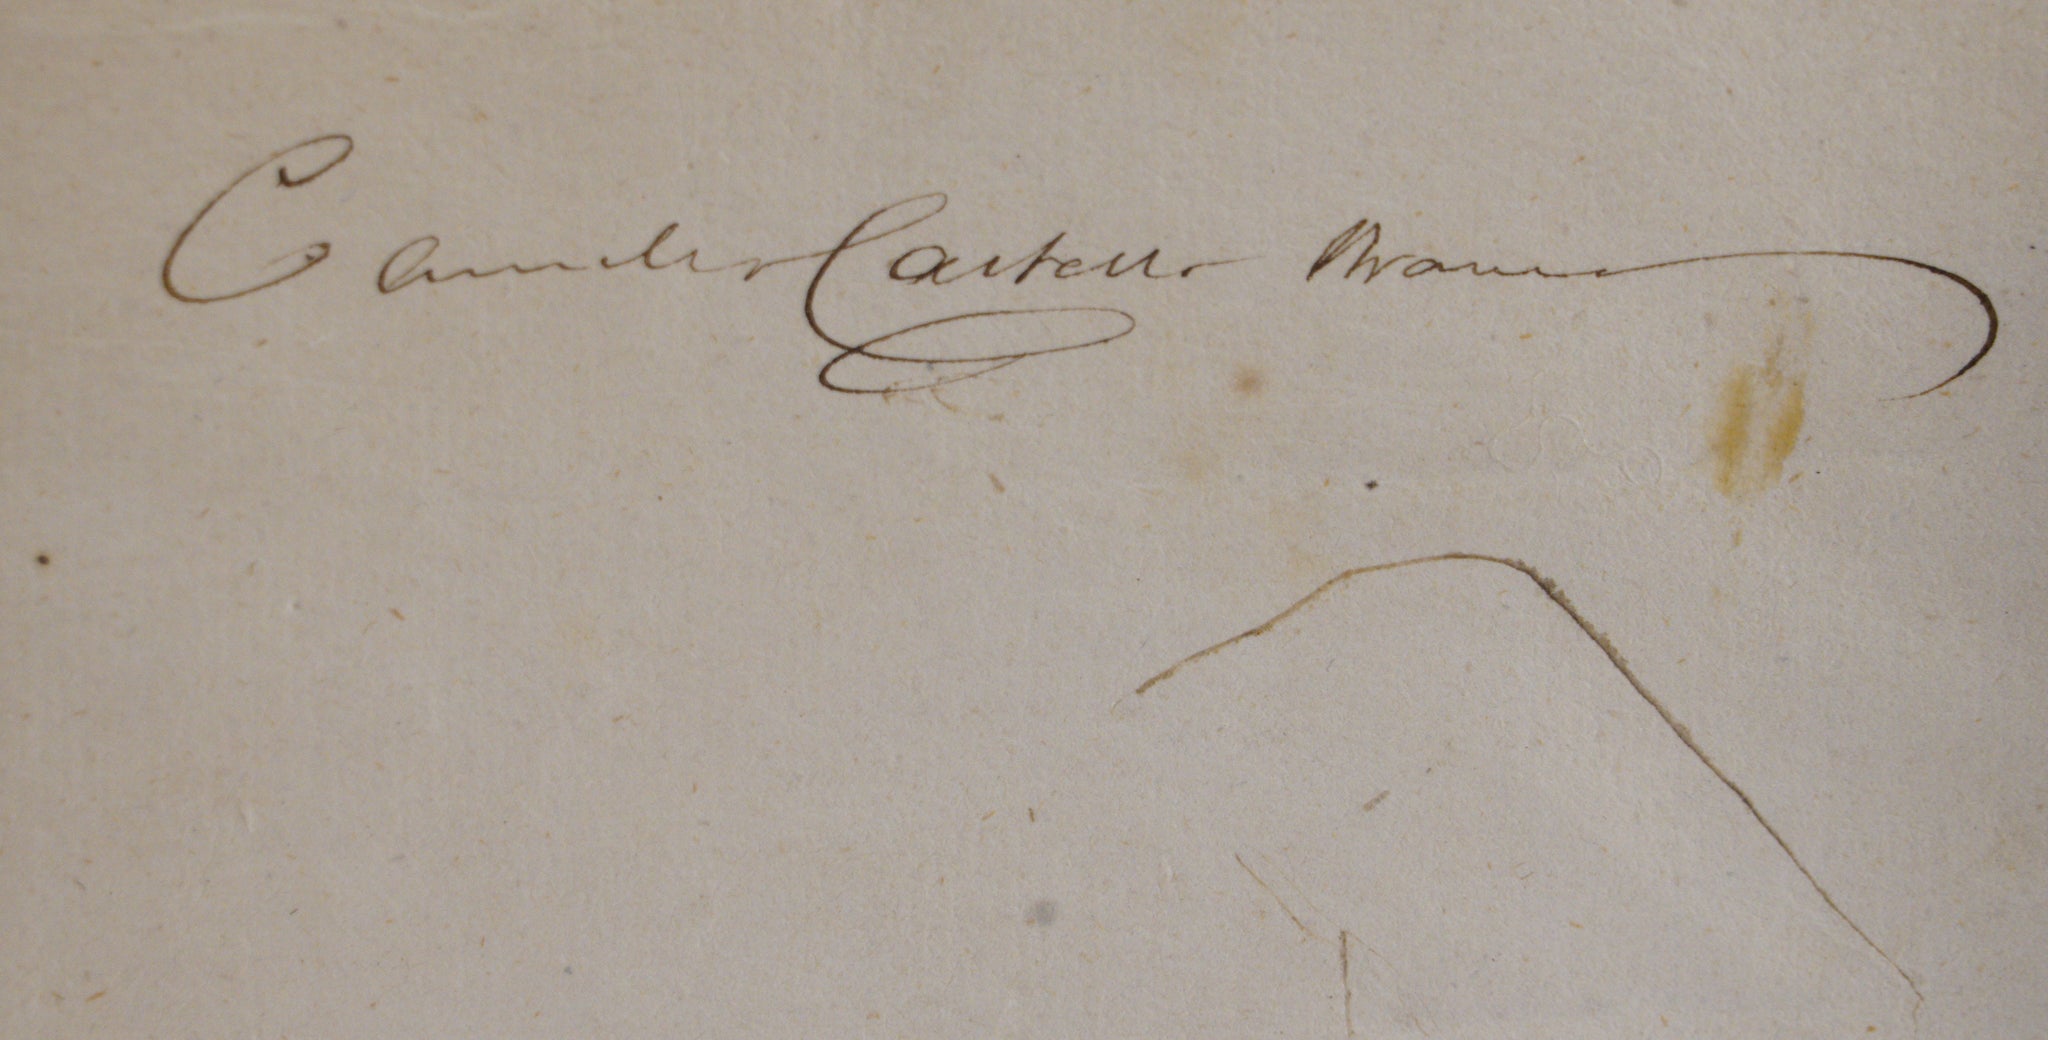 Camillo Castello Branco